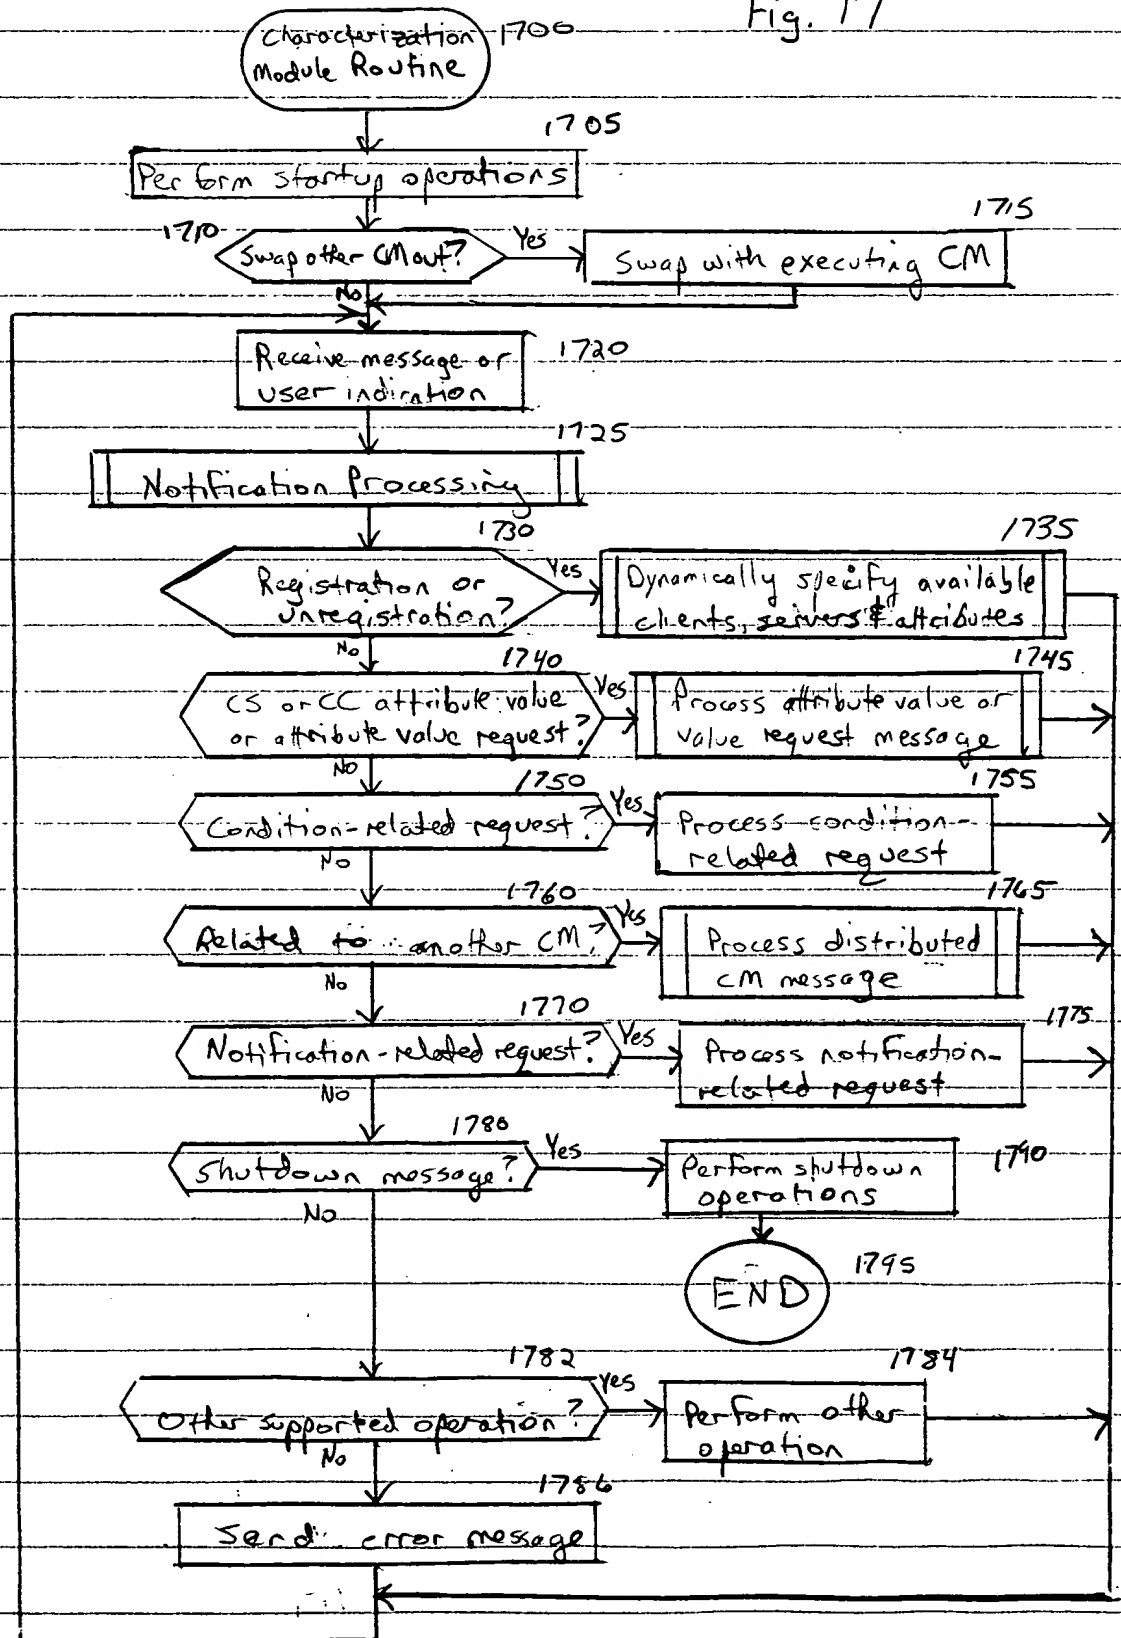 Fig. 17
Characterization 1700
Module Routine
1705
Perform startup operations
1710
Swap other CM out?
Yes
1715
Swap with executing CM
No
Receive message or
user indication
1720
1725
Notification Processing
1730
Registration or
unregistration?
Yes
1735
Dynamically specify available
clients, servers & attributes
No
1740
CS or CC attribute value
or attribute value request?
Yes
1745
Process attribute value or
value request message
No
1750
Condition-related request?
Yes
1755
Process condition-
related request
No
1760
Related to another CM?
Yes
1765
Process distributed
CM message
No
1770
Notification-related request?
Yes
1775
Process notification-
related request
No
1780
Shutdown message?
Yes
1790
Perform shutdown
operations
No
END
1795
1782
Other supported operation?
Yes
1784
Perform other
operation
No
1786
Send error message